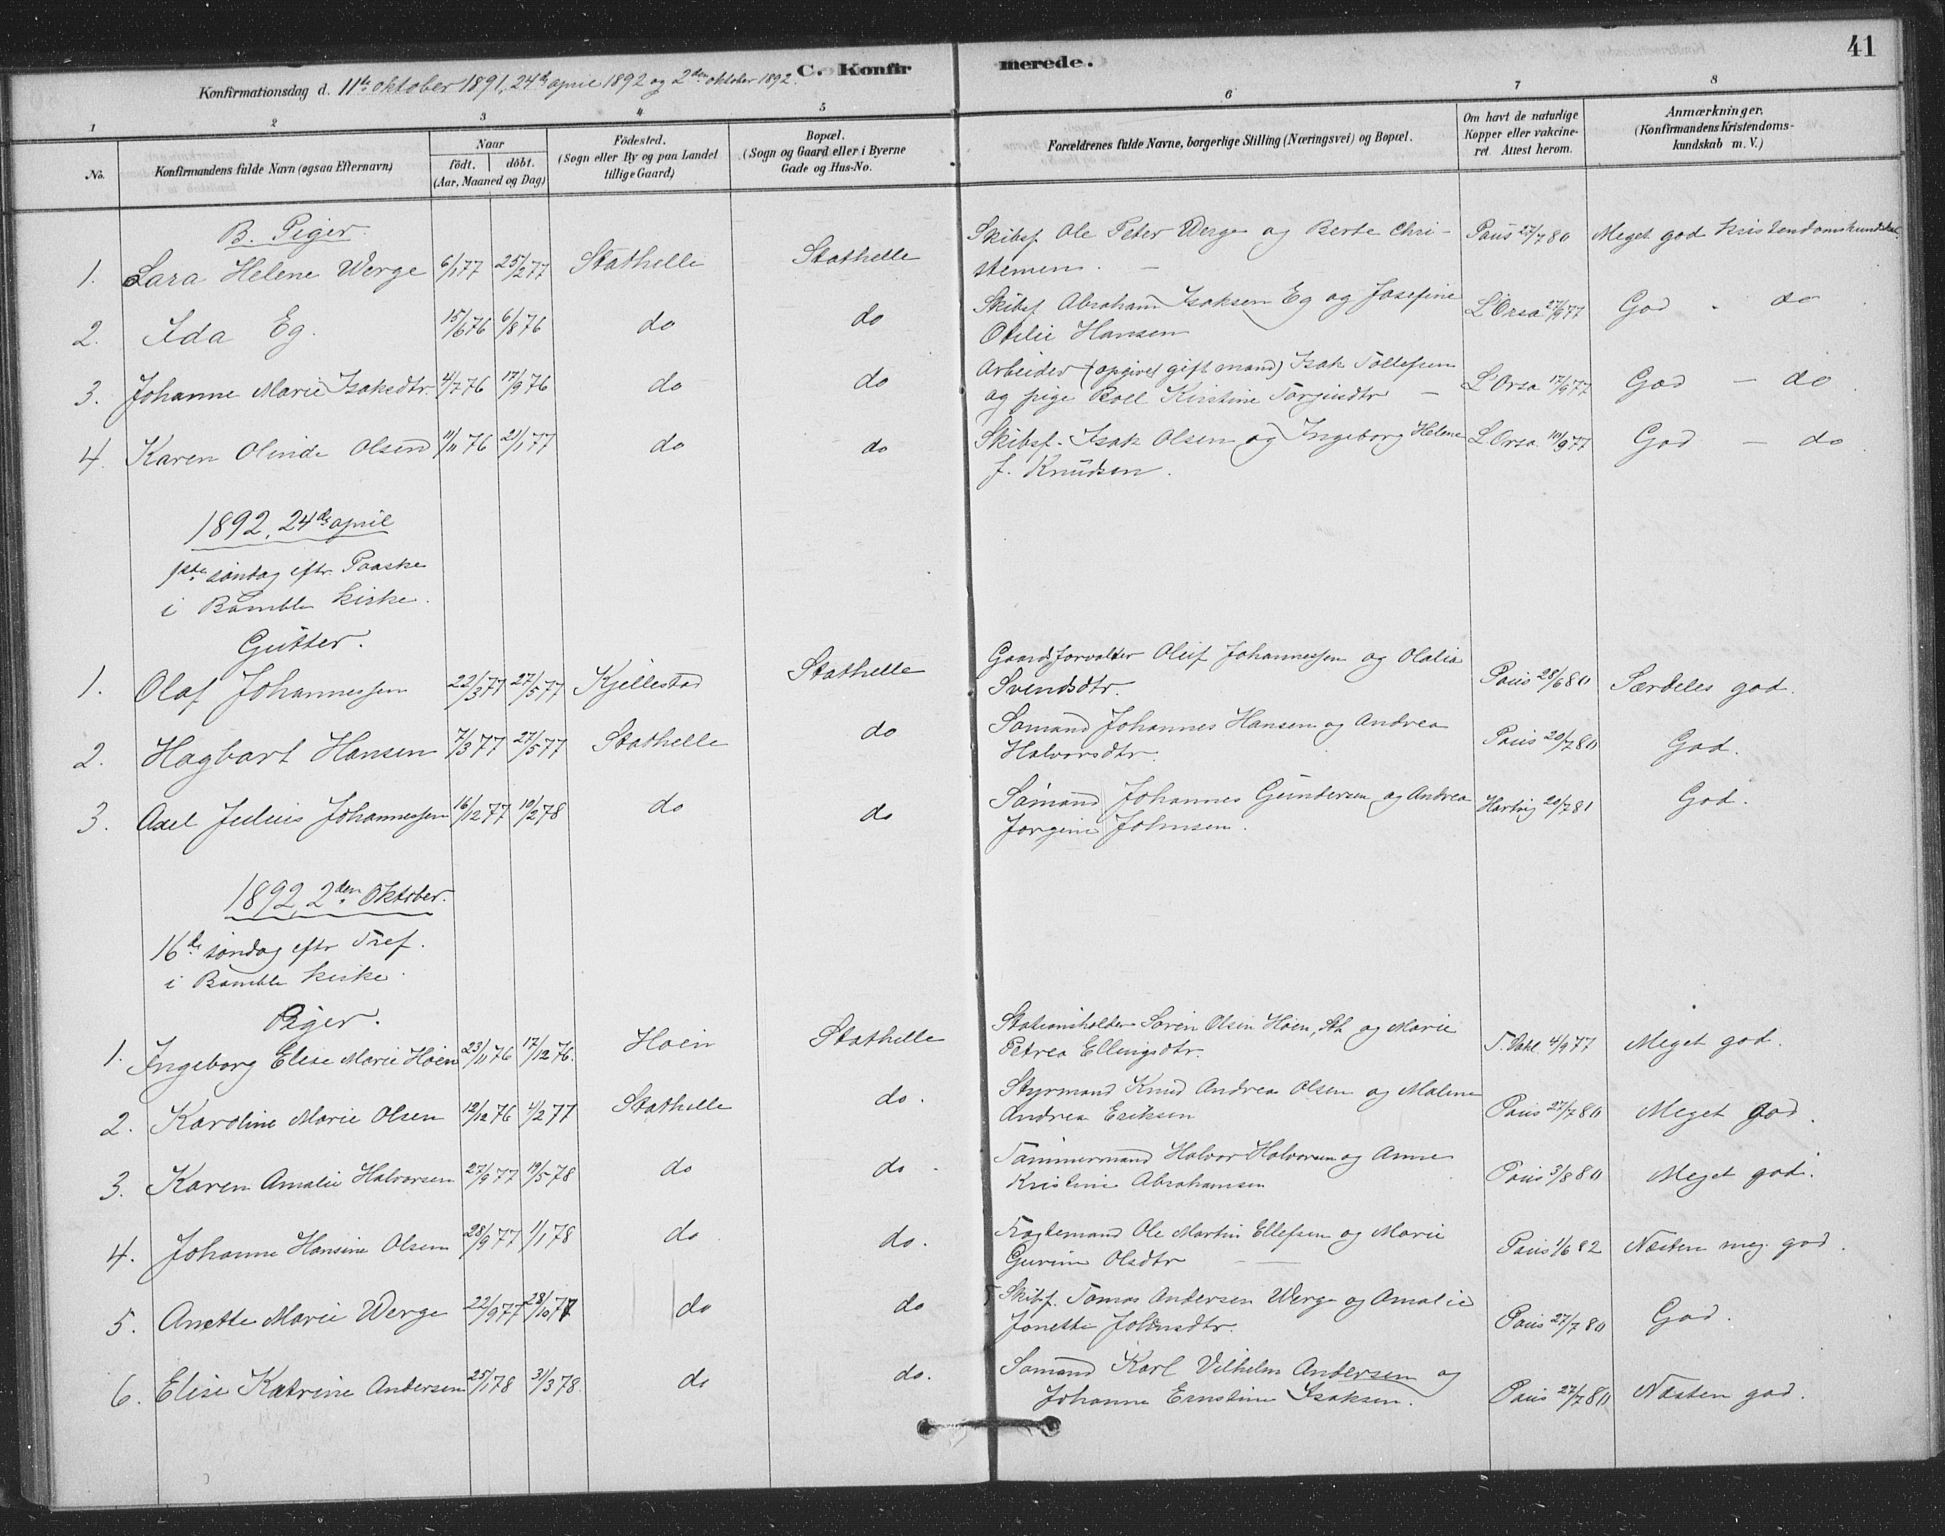 41
C. Konfirmerede.
Konfirmationsdag d. 11te oktober 1891, 24de april 1892 og 2den oktober 1892.
1 2 3 4 5 6 7 8
No. Konfirmandens fulde Navn (ogsaa Efternavn) Naar født. døbt. (Aar, Maaned og Dag) Fødested. (Sogn eller By og paa Landet tillige Gaard) Bopæl. (Sogn og Gaard eller i Byerne Gade og Hus-No. Forældrenes fulde Navne, borgerlige Stilling (Næringsvei) og Bopæl. Om havt de naturlige Kopper eller vakcineret. Attest herom. Anmærkninger. (Konfirmandens Kristendomskundskab m. V.)
B. Piger.
1. Lara Helene Werge 6/1 77 25/2 77 Stathelle Stathelle Skibsf. Ole Peter Werge og Berte Chri- Paus 27/7 80 Meget god kristendomskundskab.
stensen. –
2. Ida Eg. 15/6 76 6/8 76 do do Skibsf. Abraham Isaksen Eg og Josefine L'Orsa 27/9 77 God - do
Otilie Hansen
3. Johanne Marie Isaksdtr. 4/7 76 17/9 76 do do Arbeider (opgivet gift mand) Isak Tollefsen L'Orsa 17/9 77 God – do.
og pige Boel Kirstine Torginsdtr –
4. Karen Olinde Olsen 11/11 76 21/1 77 do do Skibsf. Isak Olsen og Ingeborg Helene L'Orsa 10/9 77 God – do
f. Knudsen.
1892, 24de april
1ste søndag eftr. Paaske
i Bamble kirke.
Gutter.
1. Olaf Johannessen 22/3 77 27/5 77 Kjellestad Stathelle Gaardsforvalter Oluf Johannessen og Olalia Paus 28/6 80 Særdeles god.
Svendsdtr.
2. Hagbart Hansen 7/3 77 27/5 77 Stathelle do Sømand Johannes Hansen og Andrea Paus 20/7 80 God.
Halvorsdtr.
3. Axel Julius Johannessen 16/12 77 10/2 78 do do Sømand Johannes Gundersen og Andrea Hartvig 20/7 81 God.
Jorgine Johnsen.
1892, 2den Oktober.
16de søndag eftr Tref.
i Bamble kirke.
Piger.
1. Ingeborg Elise Marie Høen 23/11 76 17/12 76. Høen Stathelle Stationsholder Søren Olsen Høen, Sth. og Marie T. Dahl 4/9 77 Meget god.
Petrea Ellingsdtr.
2. Karoline Marie Olsen 12/12 76 4/2 77 Stathelle do. Styrmand Knud Andreas Olsen og Malene Paus 27/7 80 Meget god.
Andrea Eriksen
3. Karen Amalie Halvorsen 27/9 77 19/5 78 do do. Tømmermand Halvor Halvorsen og Anne Paus 3/8 80 Meget god.
Kristine Abrahamsen
4. Johanne Hansine Olsen 28/9 77 1/1 78 do do. Fragtemand Ole Martin Ellefsen og Marie Paus 1/6 82 Næsten meg. god.
Gurine Olsdtr – –
5. Anette Marie Werge 22/9 77 28/10 77 do do Skibsf. Tomas Andersen Werge og Amalie Paus 27/7 80 God.
Jonette Johnsdtr.
6. Elise Katrine Andersen 25/1 78 31/3 78. do do. Sømand Karl Vilhelm Andersen og Paus 27/7 80 Næsten god.
Johanne Ernstine Isaksen.